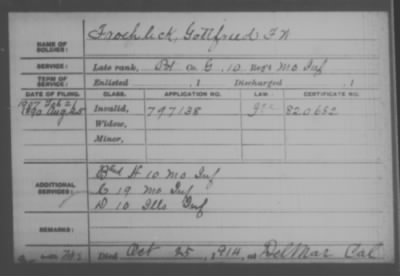 NAME OF SOLDIER: Froehlick, Gottfried F W
SERVICE: Late rank, Pvt Co G, 10 Regt Mo Inf
TERM OF SERVICE: Enlisted , 1 Discharged , 1
DATE OF FILING. CLASS. APPLICATION NO. LAW. CERTIFICATE NO.
1907 Feb 21
1890 Aug 25 Invalid, 797138 820652
Widow,
Minor,
ADDITIONAL SERVICES: H 10 Mo Inf
C 19 Mo Inf
D 10 Ills Inf
REMARKS:
Died Oct 25, 1914, at Del Mar Cal